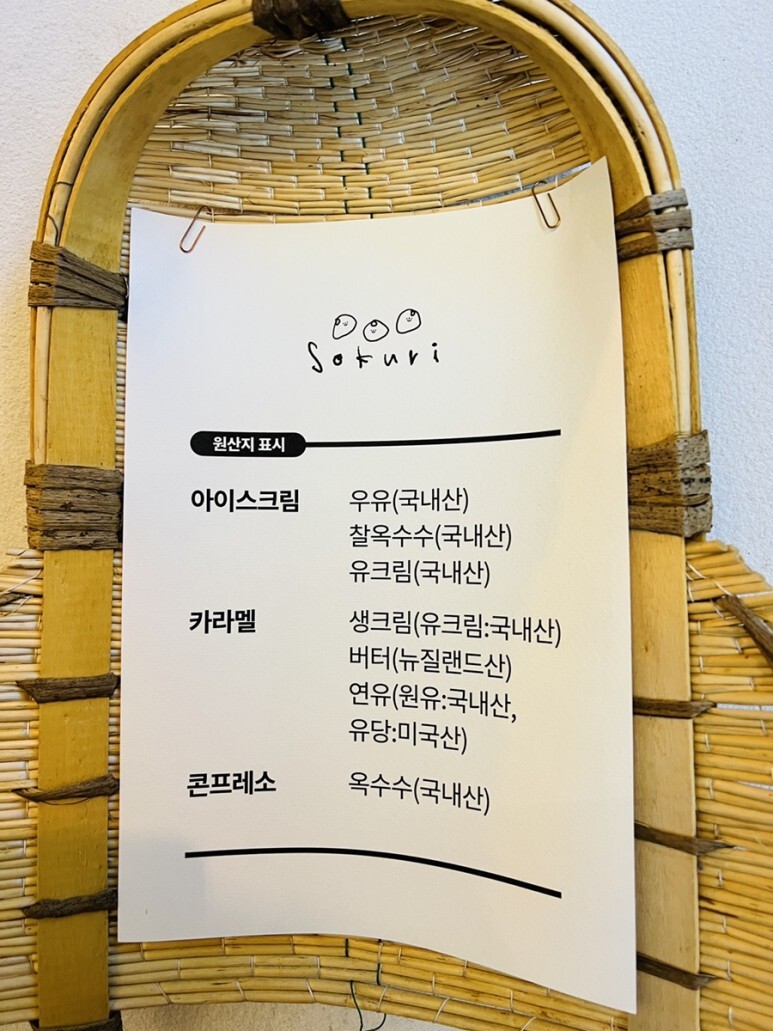 Sokuri
원산지 표시
아이스크림 우유(국내산)
찰옥수수(국내산)
유크림(국내산)
카라멜 생크림(유크림:국내산)
버터(뉴질랜드산)
연유(원유:국내산,
유당:미국산)
콘프레소 옥수수(국내산)